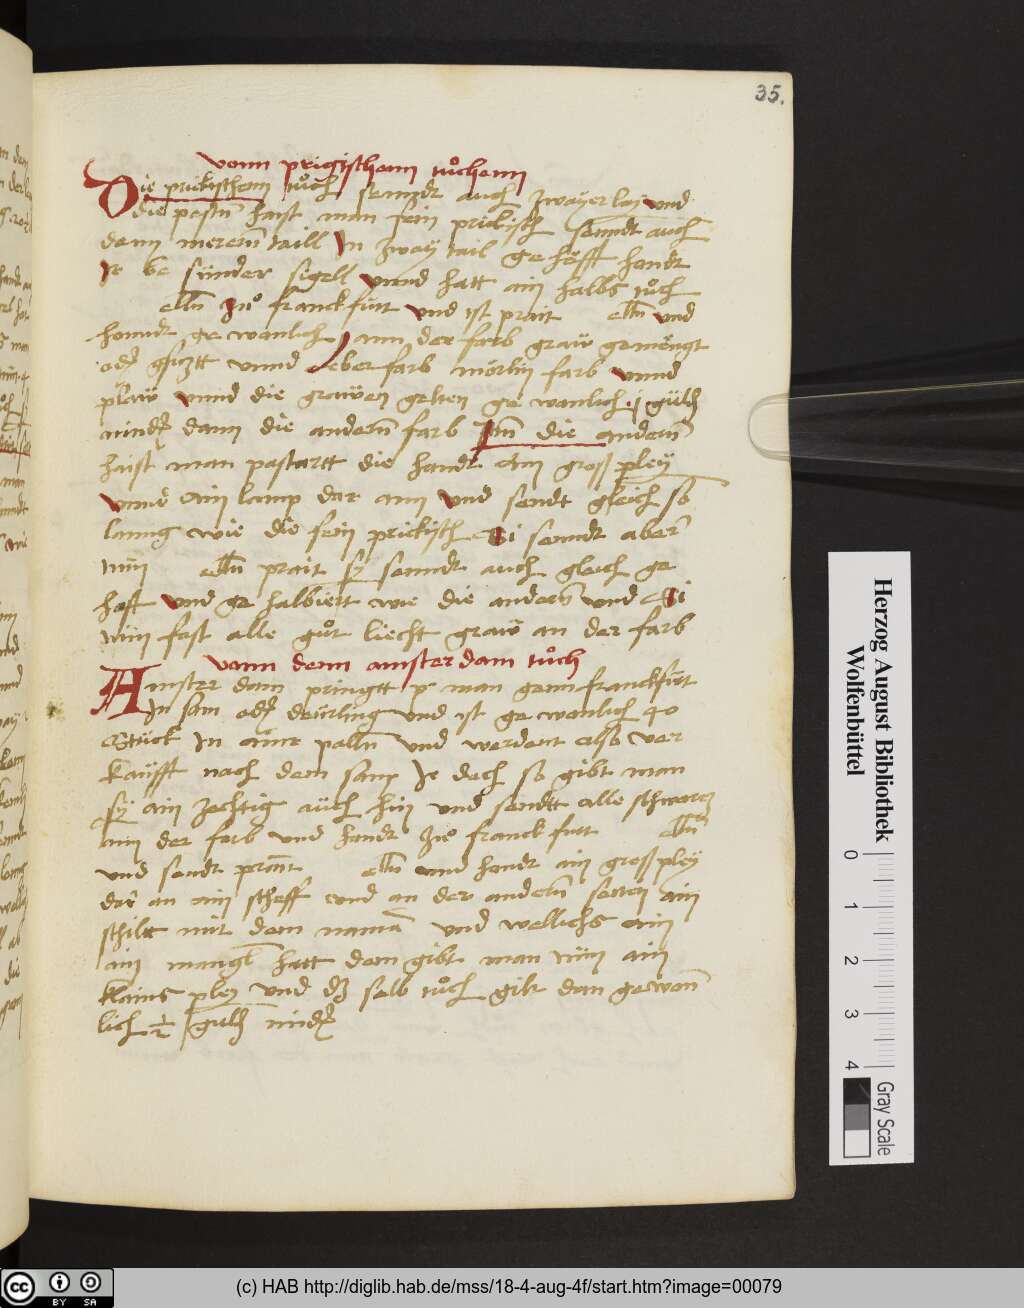 35.
vonn prigischenn tůchenn
Die prickischenn tůch senndt auch zwayerlay und
die pesten haist man fein prickisch senndt auch
denn mererñ taill In zway tail ge hefft hendt
Ir be sünder sigell unnd hatt ain halbs tůch
elln zůo franckfurt und ist prait elln und
senndt ge wanlich ann der farb graw gemengt
oder unnd Leberfarb mörlin farb unnd
plaw unnd die grawen gelten ge wanlich j güld
minder dann die anderñ farb Itm die anderñ
haist man pastartt die handt ain gross pley
unnd ain lamp dar ann und sendt gleich so
lanng wie die fein prickisch Si senndt aber
nun elln prait sy senndt auch gleich ge
heft und ge halbiert wie die anderñ und Si
nun fast alle gůt liecht graw an der farb
vonn denn amsterdam tůch
Amster dam pringtt man genn franckfurt
In sam oder deürling und ist ge wanlich 40
Stuck In ainr palln und werdent also ver
kaufft nach dem samp Ir doch so gibt man
sy ain zechtig auch hin und sendtt alle schwarcz
ann der farb und handt zůo franckfurt elln
und sendt prait elln und handt ain gross pley
dar an ain scheff und an der anderñ seiten ain
schiltt mit dem namen und wellichs ain
ain mangl hatt dem gibt man nun ain
klains pley und dz selb tůch gilt dan gewon
lich ½ guld minder
Herzog August Bibliothek
Wolfenbüttel
0 1 2 3 4
Gray Scale
cc BY SA
(c) HAB http://diglib.hab.de/mss/18-4-aug-4f/start.htm?image=00079